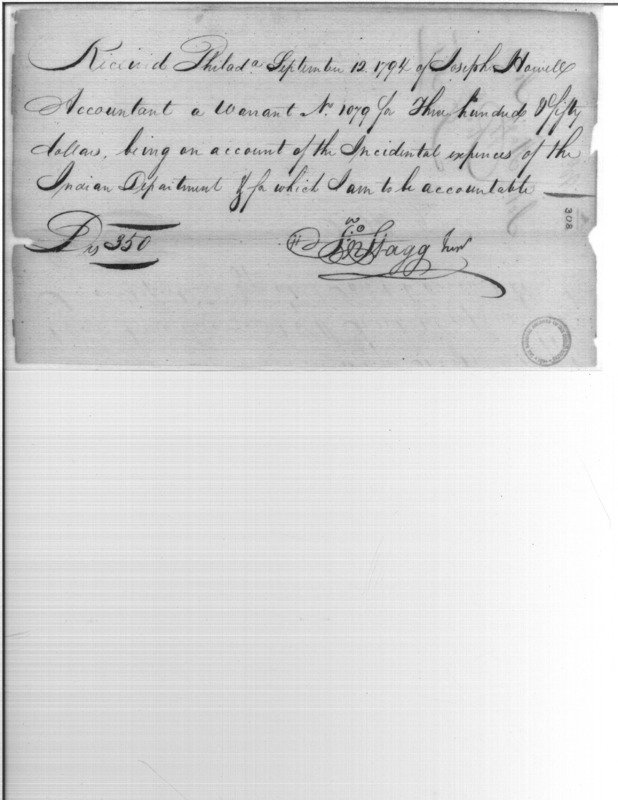 Received Philad.a September 12. 1794 of Joseph Howell
Accountant a Warrant No. 1079 for Three hundred & fifty
dollars, being on account of the Incidental expences of the
Indian Department & for which I am to be accountable
308
Drs 350
Jno Stagg Junr